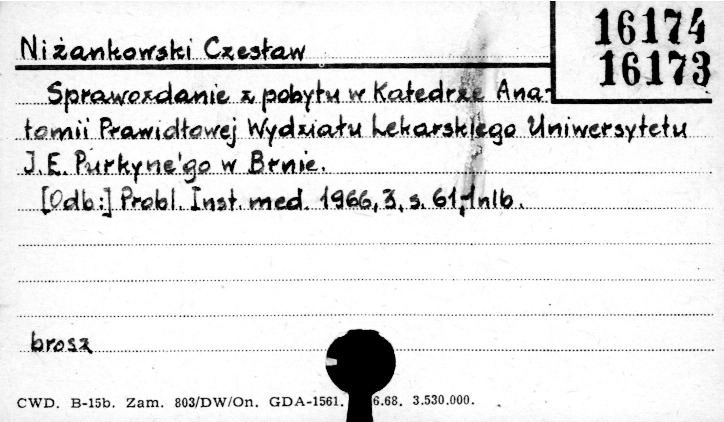 Niżankowski Czesław
16174
16173
Sprawozdanie z pobytu w Katedrze Ana-
tomii Prawidłowej Wydziału Lekarskiego Uniwersytetu
J.E. Purkyne'go w Brnie.
[Odb:] Probl. Inst. med. 1966, 3, s. 61, 1nlb.
brosz
CWD. B-15b. Zam. 803/DW/On. GDA-1561. 6.68. 3.530.000.